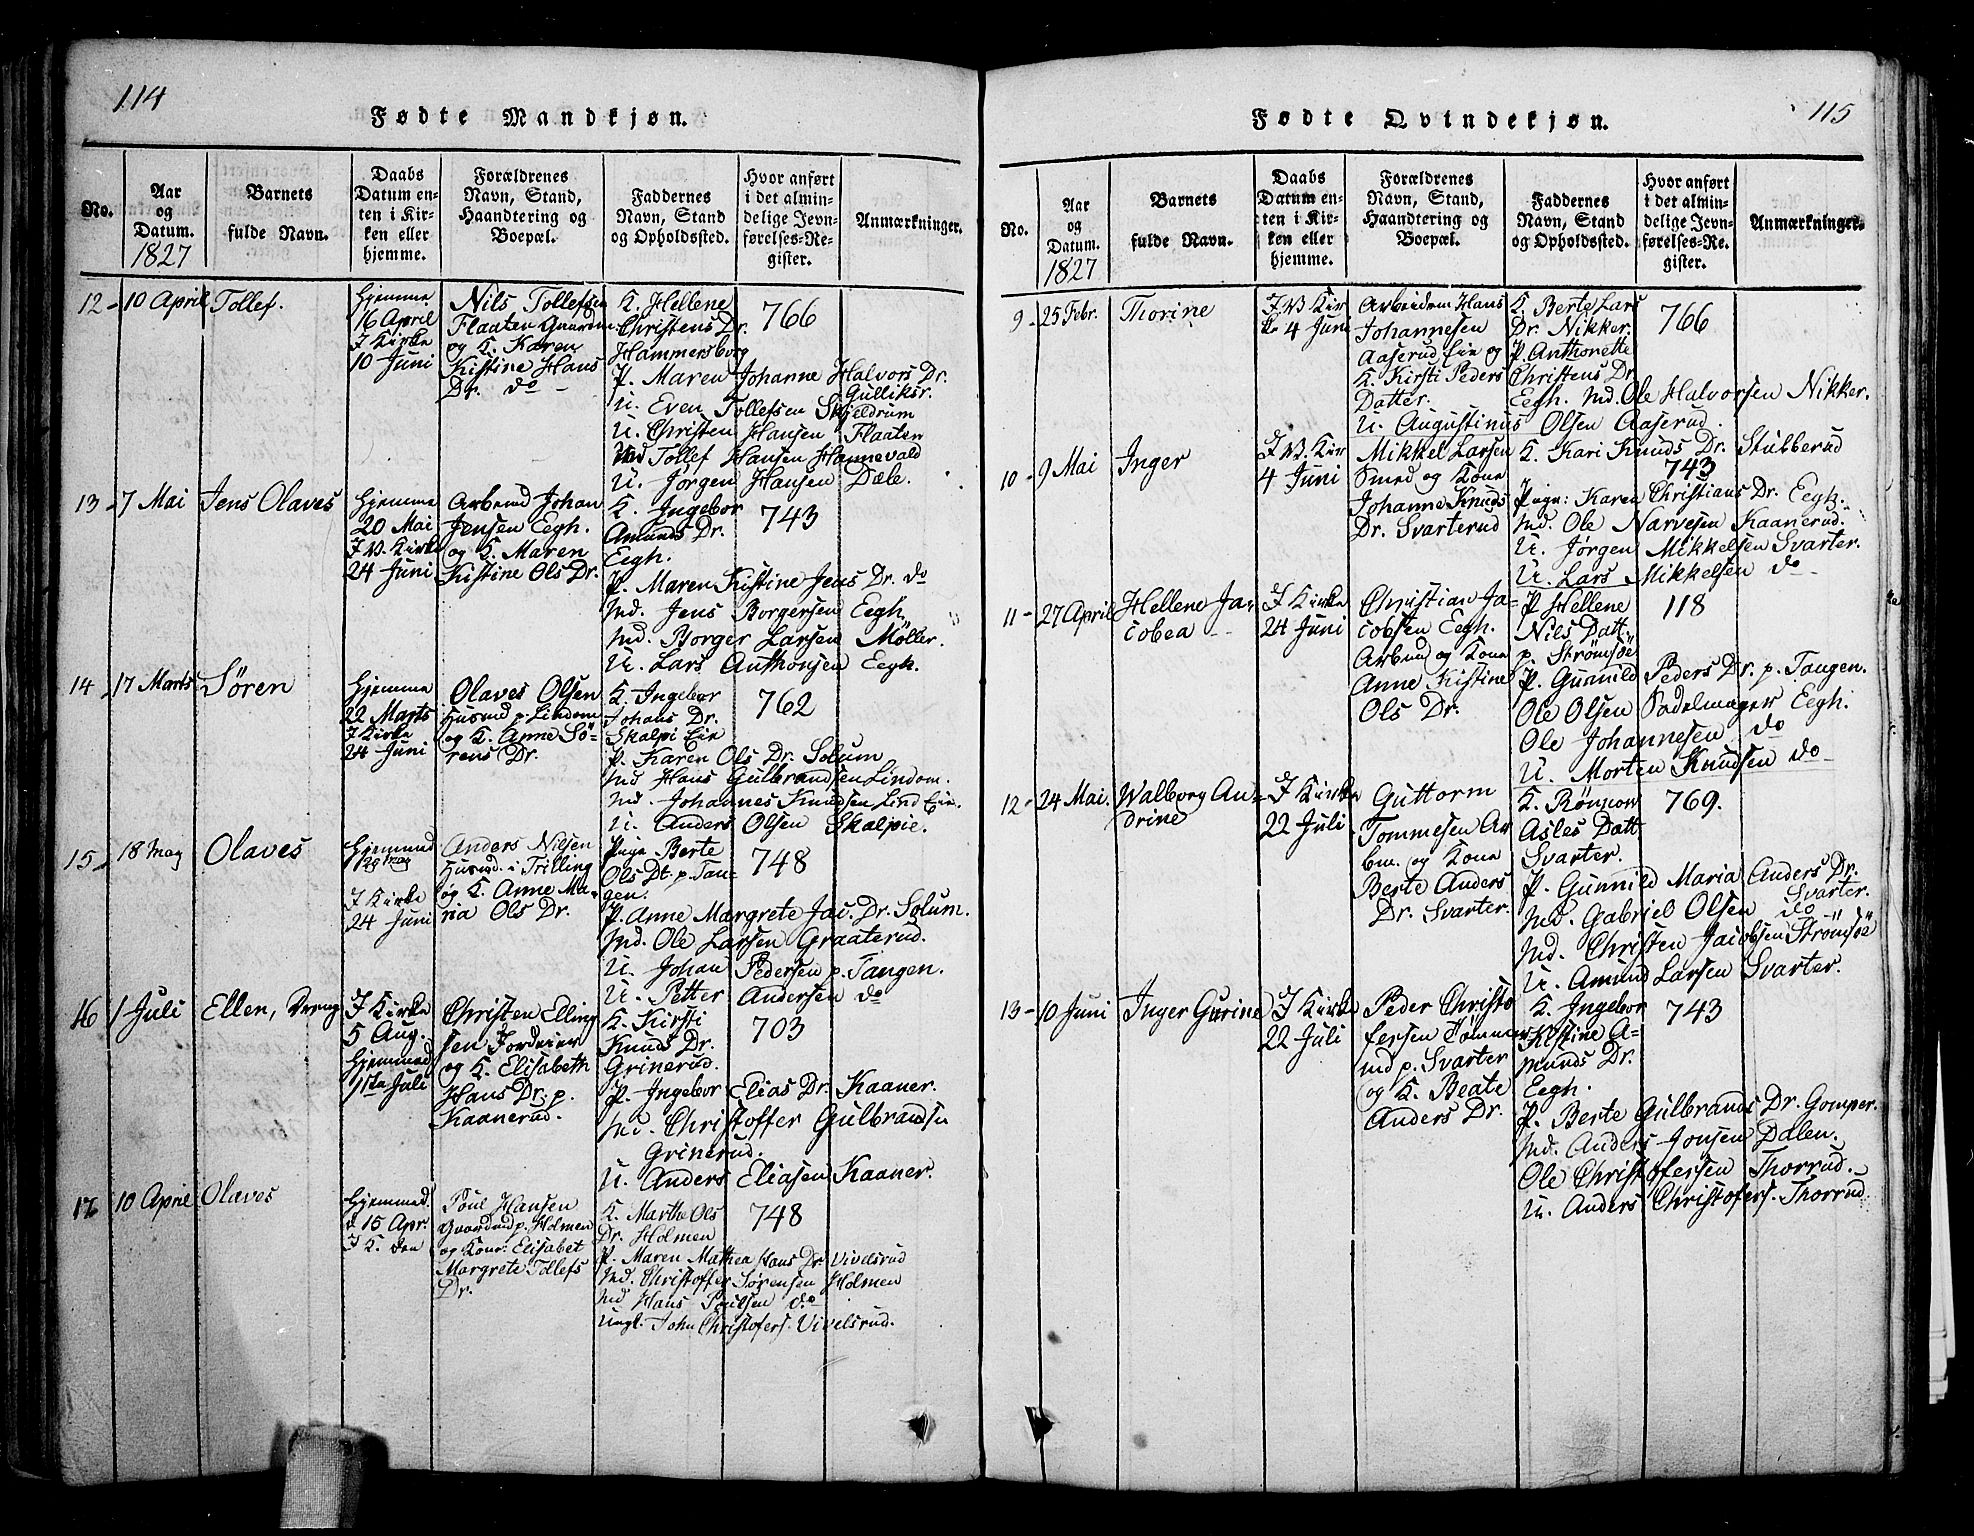 114
Fødte Mandkjøn.
No.
Aar
og
Datum.
1827
Barnets
fulde Navn.
Daabs
Datum en-
ten i Kir-
ken eller
hjemme.
Forældrenes
Navn, Stand,
Haandtering og
Boepæl.
Faddernes
Navn, Stand
og Opholdssted.
Hvor anført
i det almin-
delige Jevn-
førelses-Re-
gister.
Anmærkninger.
12 - 10 April
Tollef.
Hjemme
16 April
I Kirke
10 Juni
Nils Tollefsen
Flaaten Gaardm
og K. Karen
Kistine Hans
Dr. do -
K. Hellene
Christens Dr.
Hammersborg
P. Maren Johanne Halvors Dr.
Gulliksr.
U. Even Tollefsen Skjeldrum
U. Christen Hansen Flaaten
Md Tollef Hansen Hannevald
U. Jørgen Hansen Dæle.
766
13 - 7 Mai
Jens Olaves
Hjemme
20 Mai
I V. Kirke
24 Juni
Arbeud Johan
Jensen Eegh.
og K. Maren
Kistine Ols Dr.
K. Ingebor
Amunds Dr.
Eegh.
P. Maren Kistine Jens Dr. do
Md. Jens Borgersen Eegh.
Md. Borger Larsen Møller.
U. Lars Anthonsen Eegh.
743
14 - 17 Marts
Sören
Hjemme
22 Marts
I Kirke
24 Juni
Olaves Olsen
Husmd p. Lindom
og K. Anne Sö-
rens Dr.
K. Ingebor
Johans Dr.
Skalpi Eie
P. Karen Ols Dr. Solum
Md Hans Gulbrandsen Lindom.
Md. Johannes Knudsen Lind Eie.
U. Anders Olsen Skalpie.
762
15 - 18 May
Olaves
Hjemmed
20 May
I Kirke
24 Juni
Anders Nilsen
Husmd. i Trilling
og K. Anne Ma-
ria Ols Dr.
Pige Berte
Ols Dt. p. Tan-
gen.
P. Anne Margrete Jac. Dr. Solum.
Md. Ole Larsen Graaterud.
U. Johan Pedersen p. Tangen.
U. Petter Andersen do
748
16 1 Juli
Ellen, Dreng
I Kirke
5 Aug.
Hjemmed
11te Juli
Christen Elling
sen Jordeier
og K. Elisabeth
Hans Dr. p.
Kaanerud.
K. Kirsti
Knuds Dr.
Grinerud.
P. Ingebor Elias Dr. Kaaner.
Md. Christoffer Gulbrandsn
Grinerud.
U. Anders Eliasen Kaaner.
703
17. 10 April
Olaves
Hjemmed.
d 15 Apr.
I K. den
Poul Hansen
Gaardmd p. Holmen
og Kone: Elisabet
Margrete Tollefs
Dr.
K. Marthe Ols
Dr. Holmen
P. Maren Mathea Hans Dr Vivelsrud
Md. Christoffer Sørensen Holmen
Md Hans Poulsen do
Ungl. John Christofers. Vivelsrud.
748
115
Fødte Qvindekjøn.
No.
Aar
og
Datum.
1827
Barnets
fulde Navn.
Daabs
Datum en-
ten i Kir-
ken eller
hjemme.
Forældrenes
Navn, Stand,
Haandtering og
Boepæl.
Faddernes
Navn, Stand
og Opholdssted.
Hvor anført
i det almin-
delige Jevn-
førelses-Re-
gister.
Anmærkninger.
9 - 25 Febr.
Thorine
I V. Kir
ke 4 Juni
Arbeidem Hans
Johannesen
Aaserud Eie og
K. Kirsti Peders
Datter.
K. Berte Lars
Dr. Nikker.
P. Anthonette
Christens Dr
Eegh. Md. Ole Halvorsen Nikker.
U. Augustinus Olsen Aaserud.
766
10 - 9 Mai
Inger
I V. Kir
4 Juni
Mikkel Larsen
Smed og Kone
Johanne Knuds
Dr. Svarterud
K. Kari Knuds Dr. Stubberud
743
Pige: Karen Christians Dr. Eegh.
Md. Ole Narvesen Kaanerud.
U. Jørgen Mikkelsen Svarter.
U. Lars Mikkelsen do
11 - 27 April
Hellene Ja-
cobea
I Kirke
24 Juni
Christian Ja-
cobsen Eegh.
Arbmd og Kone
Anne Kistine
Ols Dr.
P Hellene
Nils Datt.
p. Strömsöe
P. Gunnild Peders Dr. p. Tangen.
Ole Olsen Sadelmager Eegh.
Ole Johannesen do
U. Morten Knudsen do
118
12 - 24 Mai.
Walborg An-
drine
I Kirke
22 Juli
Guttorm
Tommesen Ar
bm. og Kone
Berte Anders
Dr. Svarter.
K. Rönnow
Asles Datt
Svarter.
P. Gunnild Maria Anders Dr.
Svarter.
Md. Gabriel Olsen do
Md. Christen Jacobsen Strömsöe
U. Amund Larsen Svarter.
769.
13 - 10 Juni
Inger Gurine
I Kirke
22 Juli
Peder Christo
fersen Tömmer
md p. Svarter
og K. Beate
Anders Dr.
K. Ingebor
Kistine A-
munds Dr.
Eegh.
P. Berte Gulbrands Dr. Gomper.
Md. Anders Jonsen Dalen.
Ole Christofersen Thorrud.
U. Anders Christofers. Thorrud
743